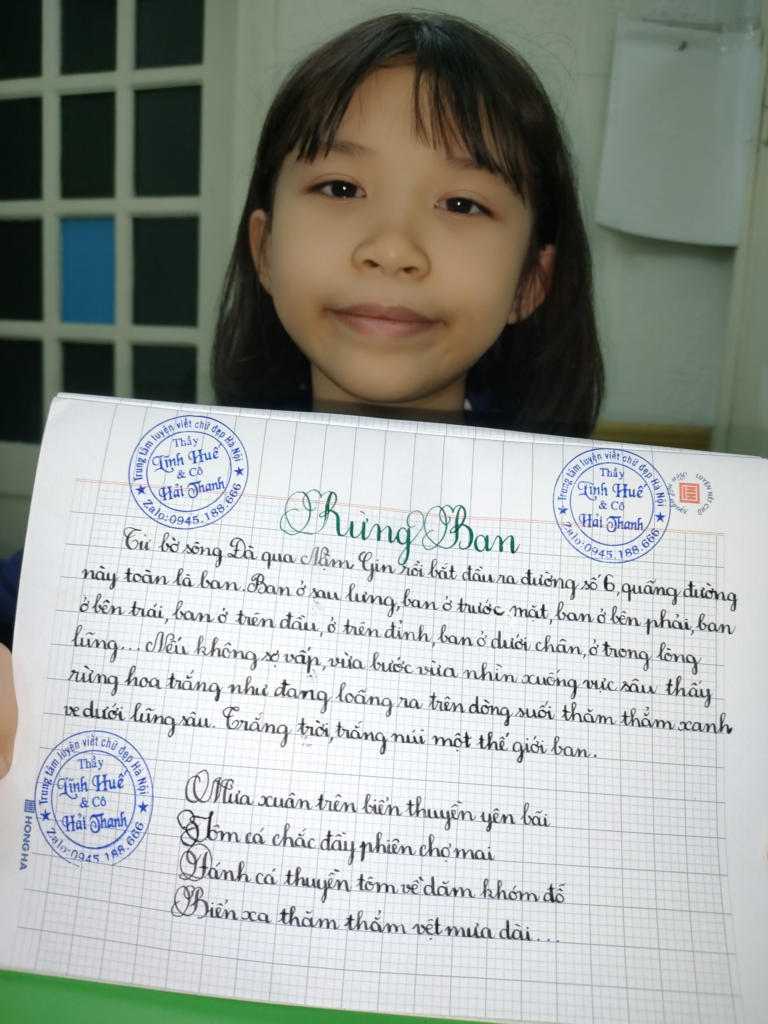 Trung tâm luyện viết chữ đẹp Hà Nội
Thầy
Linh Huế
& Cô
Hải Thanh
Zalo:0945.188.666
Trung tâm luyện viết chữ đẹp Hà Nội
Thầy
Linh Huế
& Cô
Hải Thanh
Zalo:0945.188.666
LUYỆN NÉT CHỮ
Rừng Ban
Từ bờ sông Đà qua Nậm Gin rồi bắt đầu ra đường số 6, quãng đường
này toàn là ban. Ban ở sau lưng, ban ở trước mặt, ban ở bên phải, ban
ở bên trái, ban ở trên đầu, ở trên đỉnh, ban ở dưới chân, ở trong lòng
lũng... Nếu không sợ vấp, vừa bước vừa nhìn xuống vực sâu thấy
rừng hoa trắng như đang loãng ra trên dòng suối thăm thẳm xanh
ve dưới lũng sâu. Trắng trời, trắng núi một thế giới ban.
Trung tâm luyện viết chữ đẹp Hà Nội
Thầy
Linh Huế
& Cô
Hải Thanh
Zalo:0945.188.666
HONG HA
Mưa xuân trên biển thuyền yên bãi
Tôm cá chắc đầy phiên chợ mai
Đánh cá thuyền tôm về dăm khóm đỗ
Biển xa thăm thẳm vệt mưa dài...